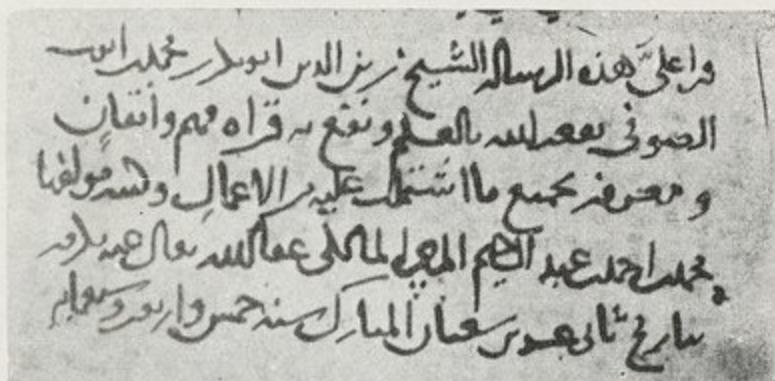 قرا علىّ هذه الرساله الشيخ زين الدين ابو بكر محمد بن
الصوفى نفعه الله بالعلم ونفع به قراه فهم واتقان
ومعرفه بجميع ما اشتملت عليه من الاعمال وكتبه مولفها
محمد بن احمد بن عبد الرحيم المزى المالكى عفا الله تعالى عنه بكرمه
بتاريخ ثانى عشرين شعبان المبارك سنه خمس واربعين وسبعمايه